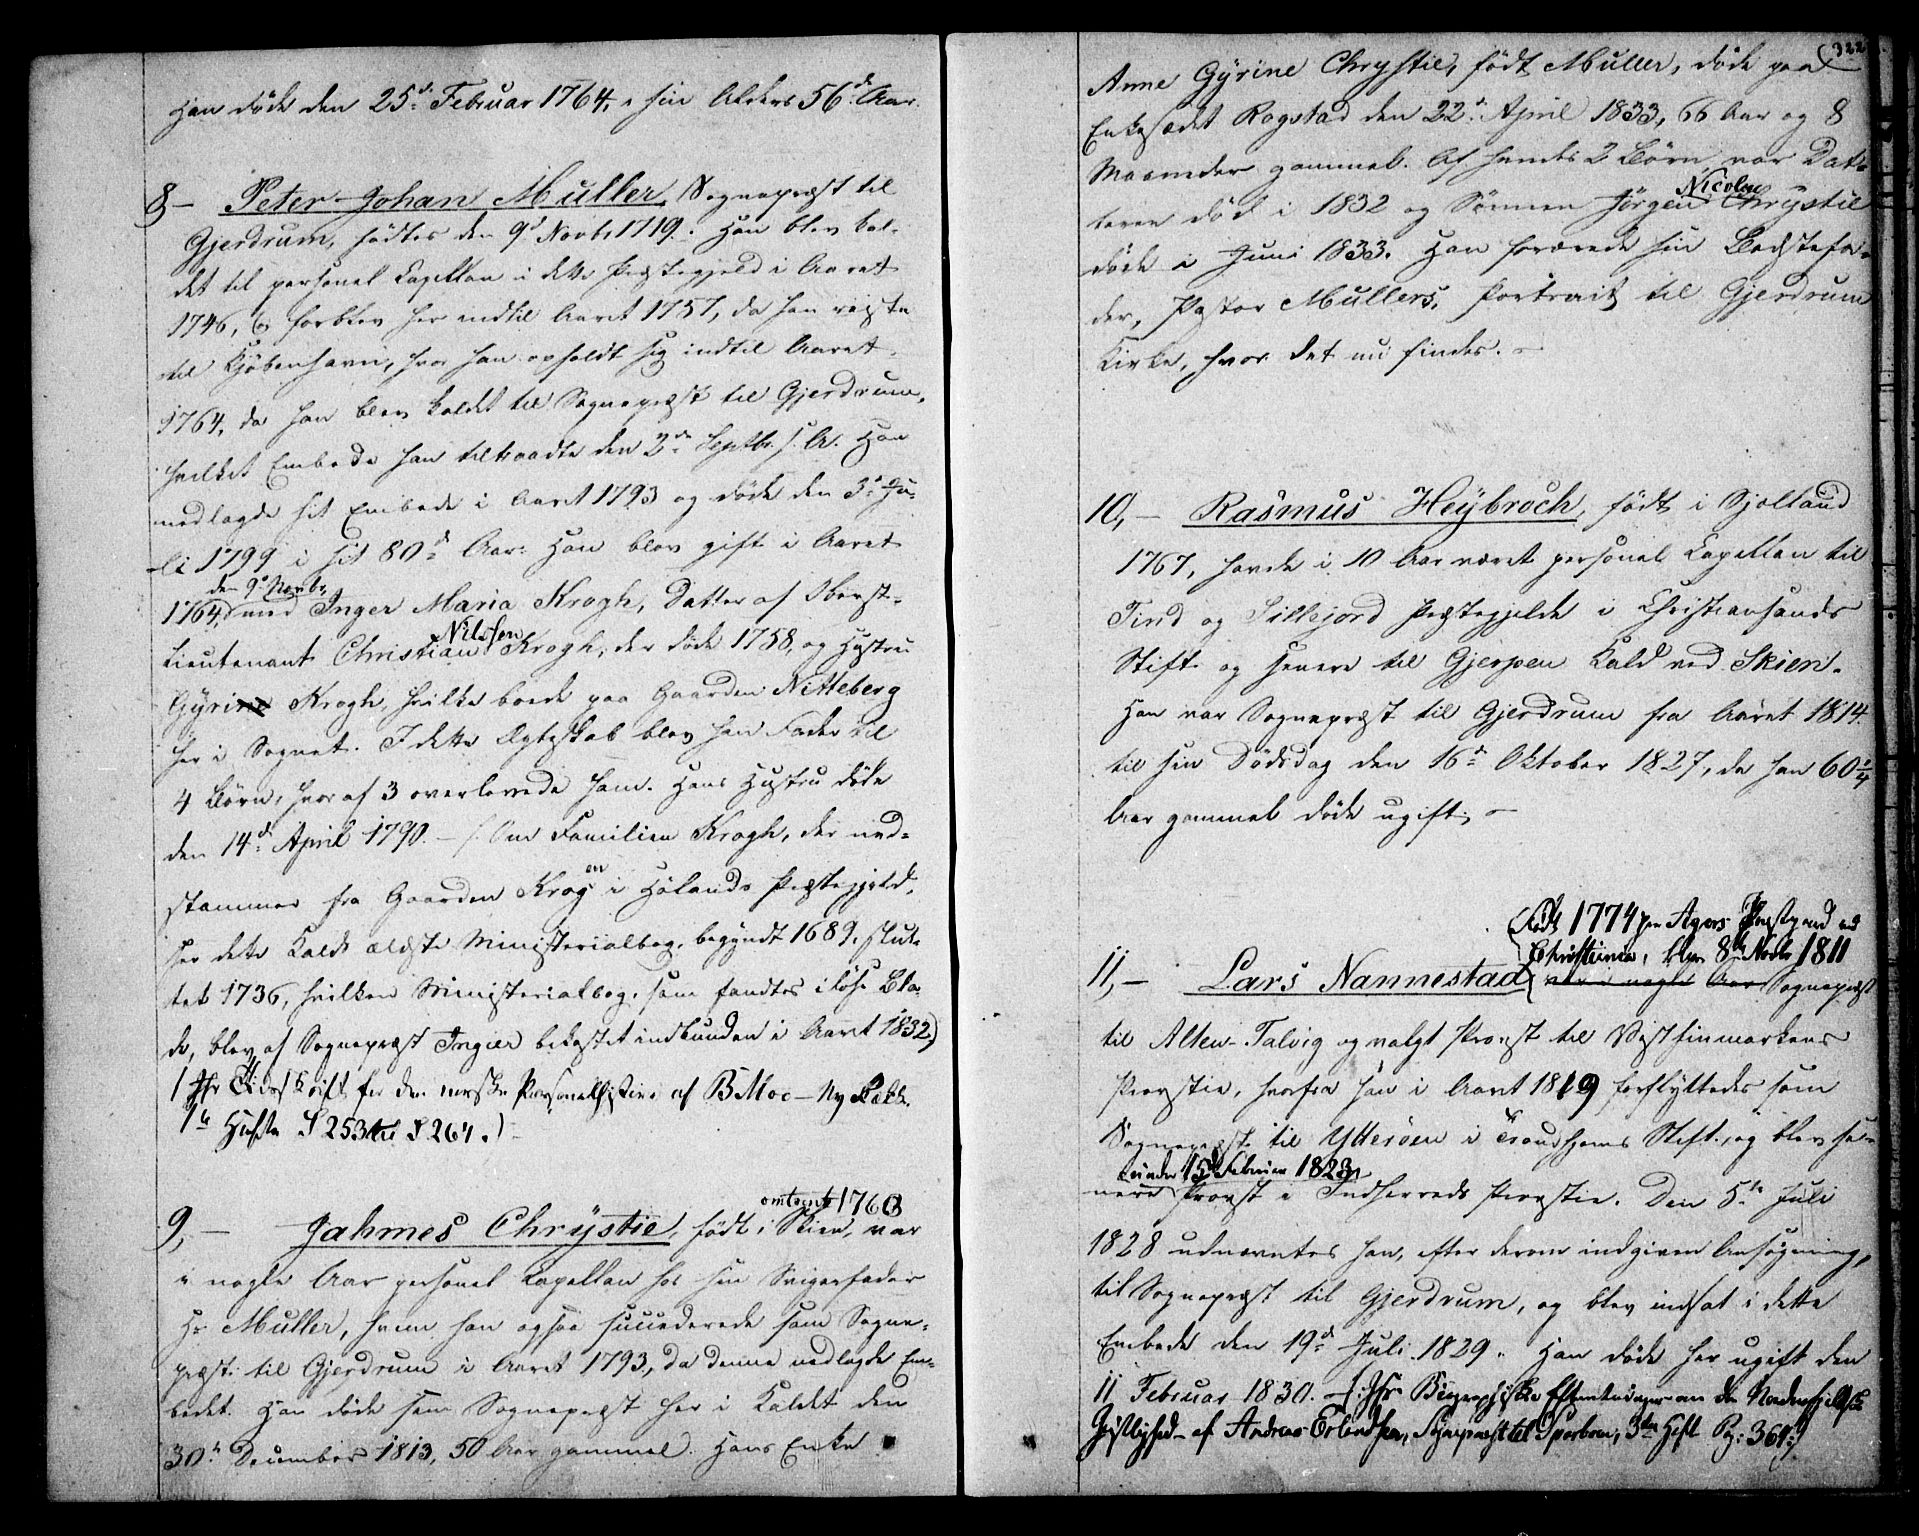 Han døde den 25de Februar 1764, i sin Alders 56de Aar.
8 – Peter Johan Muller, Sognepræst til
Gjerdrum, fødtes den 9de Novbr 1719. Han blev kal-
det til personel Capellan i dette Præstegjeld i Aaret
1746, og forblev her indtil Aaret 1757, da han reiste
til Kjöbenhavn, hvor han opholdt sig indtil Aaret
1764, da han blev kaldet til Sognepræst til Gjerdrum,
hvilket Embede han tiltraadte den 2den Septbr. s. A. Han
nedlagde sit Embede i Aaret 1793 og døde den 3die Ju-
li 1799 i sit 80de Aar. Han blev gift i Aaret
den 9de Novbr.
1764, med Inger Maria Krogh, Datter af Oberst-
Nilssen
Lieutenant Christian Krogh, der døde 1758, og Hustru
Gyrine Krogh, hvilke boede paa Gaarden Nitteberg
her i Sognet. I dette Ægteskab blev han Fader til
4 Børn, hvoraf 3 overlevede ham. Hans Hustru døde
den 14de April 1790. – (Om Familien Krogh, der ned-
stammer fra Gaarden Krogen i Hölands Præstegjeld,
see dette Kalds ældste Ministerialbog, begyndt 1689, slut-
tet 1736, hvilken Ministerialbog, som fandtes i løse Bla-
de, blev af Sognepræst Ingier bekostet indbunden i Aaret 1832.)
( Jfr Tidsskrift for den norske Personalhistorie af B Moe – Ny Række
1ste Hefte S 253 til S 264.)
omtrent 1763
9, – Jahmes Chrÿstie, født i Skien, var
i nogle Aar personel Capellan hos sin Svigerfader
Hr Muller, hvem han ogsaa succederede som Sogne-
præst til Gjerdrum i Aaret 1793, da denne nedlagde Em-
bedet. Han døde som Sognepræst her i Kaldet den
30te December 1813, 50 Aar gammel. Hans Enke
322
Anne Gÿrine Chrystie, født Muller, døde paa
Enkesædet Rogstad den 22de April 1833, 66 Aar og 8
Maaneder gammel. Af hendes 2 Børn var Dat-
Nicolay
teren død i 1832 og Sønnen Jörgen Chrystie
døde i Juni 1833. Han forærede sin Bedstefa-
der, Pastor Mullers, Portrait til Gjerdrum
Kirke, hvor det nu findes. –
10, – Rasmus Heÿbroch, født i Sjælland
1767, havde i 10 Aar været personel Capellan til
Tind og Sillejord Præstegjelde i Christiansands
Stift og senere til Gjerpen Kald ved Skien.
Han var Sognepræst til Gjerdrum fra Aaret 1814
til sin Dødsdag den 16de Oktober 1827, da han 60 1/4
Aar gammel døde ugift. –
(Født 1774 paa Agers Præstgaard ved
Christiania, blev 8de Novbr 1811
11, – Lars Nannestad var i nogle Aar Sognepræst
til Alten-Talvig og valgt Provst til Vestfinmarkens
Provstie, hvorfra han i Aaret 1819 forflyttedes som
Sognepræst til Ytterøen i Trondhjems Stift, og blev se-
under 15de Februar 1823
nere Provst i Indherreds Provstie. Den 5te Juli
1828 udnævntes han, efter derom indgiven Ansøgning,
til Sognepræst til Gjerdrum, og blev indsat i dette
Embede den 19de Juli 1829. Han døde her ugift den
11 Februar 1830. – (Jfr Biographiske Efterretninger om den Nordenfjeldske
Geistlighed – af Andreas Erlandsen, Sognepræst til Sparboen, 3die Heft Pag: 361.)